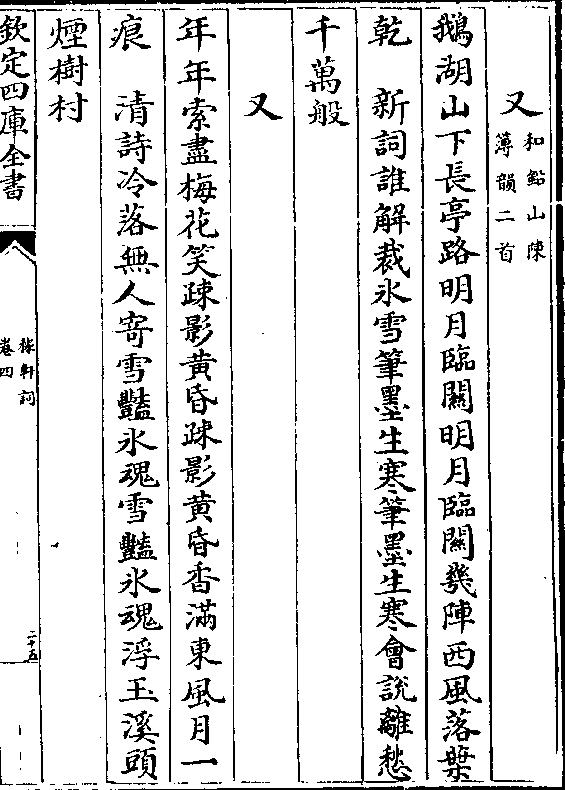 又和鉛山陳
簿韻二首
鵝湖山下長亭路明月臨關明月臨關幾陣西風落葉
乾　新詞誰解裁氷雪筆墨生寒筆墨生寒會說離愁
千萬般
又
年年索盡梅花笑疎影黃昏疎影黃昏香滿東風月一
痕　清詩冷落無人寄雪豔氷魂雪豔氷魂浮玉溪頭
煙樹村
欽定四庫全書
稼軒詞
卷四
二十五